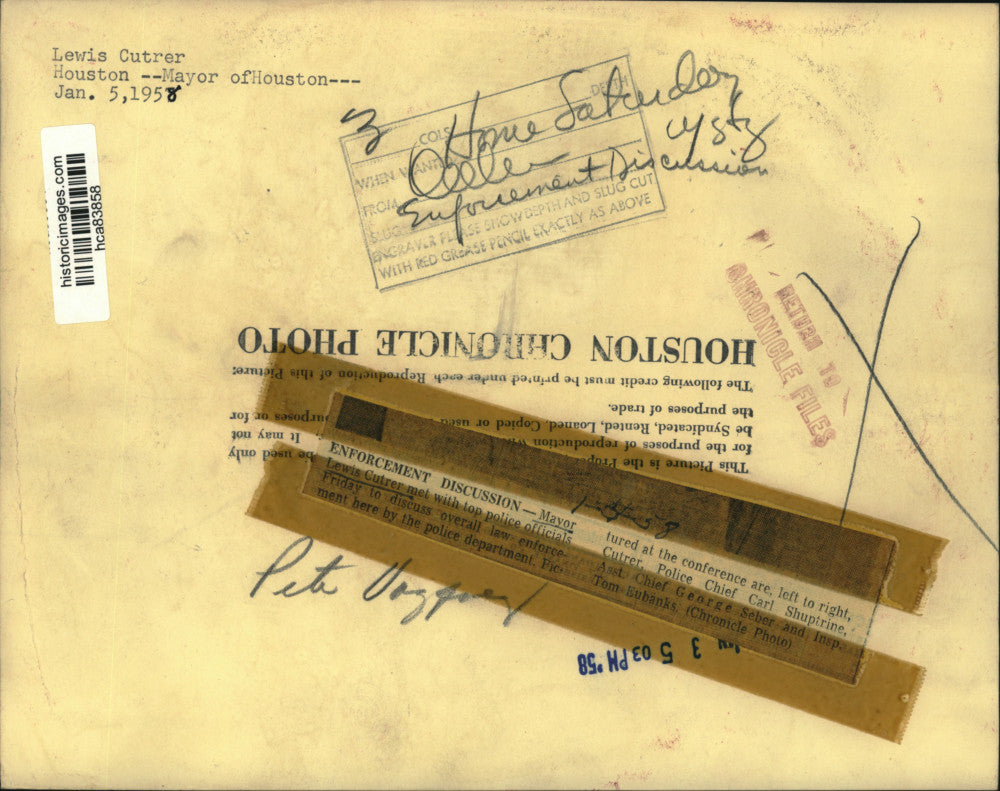 Lewis Cutrer
Houston --Mayor ofHouston---
Jan. 5,1958
historicimages.com
hca83858
3
COLS.
DEPTH
Home Saturday
WHEN WANTED
FROM
Enforcement Discussion
SLUGS
ENGRAVER PLEASE SHOW DEPTH AND SLUG CUT
WITH RED GREASE PENCIL EXACTLY AS ABOVE
RETURN TO
CHRONICLE FILES
HOUSTON CHRONICLE PHOTO
The following credit must be printed under each Reproduction of this Picture:
This Picture is the
be used only
for the purposes of reproduction
It may not
be Syndicated, Rented, Loaned, Copied or used
purposes or for
the purposes of trade.
ENFORCEMENT DISCUSSION — Mayor
Lewis Cutrer met with top police officials
Friday to discuss overall law enforce-
ment here by the police department. Pic-
tured at the conference are, left to right,
Cutrer, Police Chief Carl Shupirine,
Asst. Chief George Seber and Insp.
Tom Eubanks. (Chronicle Photo)
1-5-58
Pete Vazquez
JAN 3 5 03 PM '58